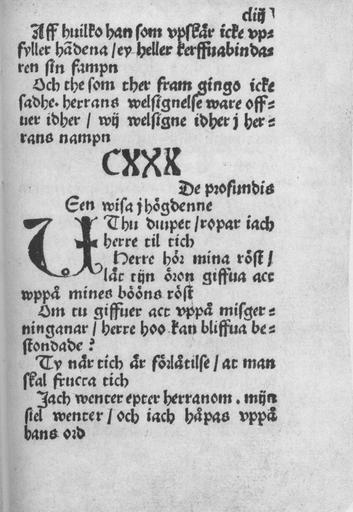 cliij
Aff huilko han som vpskär icke vp⸗
fyller hãdena / ey heller kerffuabinda⸗
ren sin fampn
Och the som ther fram gingo icke
sadhe. herrans welsignelse ware off⸗
uer idher / wij welsigne idher j her⸗
rans nampn
CXXX
De profundis
Een wisa j högdenne
UThu diupet / ropar iach
herre til tich
Herre hör mina röst /
lät tijn öron giffua act
vppå mines bööns röst
Om tu giffuer act vppå misger⸗
ninganar / herre hoo kan bliffua be⸗
stondade ?
Ty när tich är förlåtilse / at man
skal fructa tich
Jach wenter epter herranom . mijn
siel wenter / och iach håpas vppå
hans ord